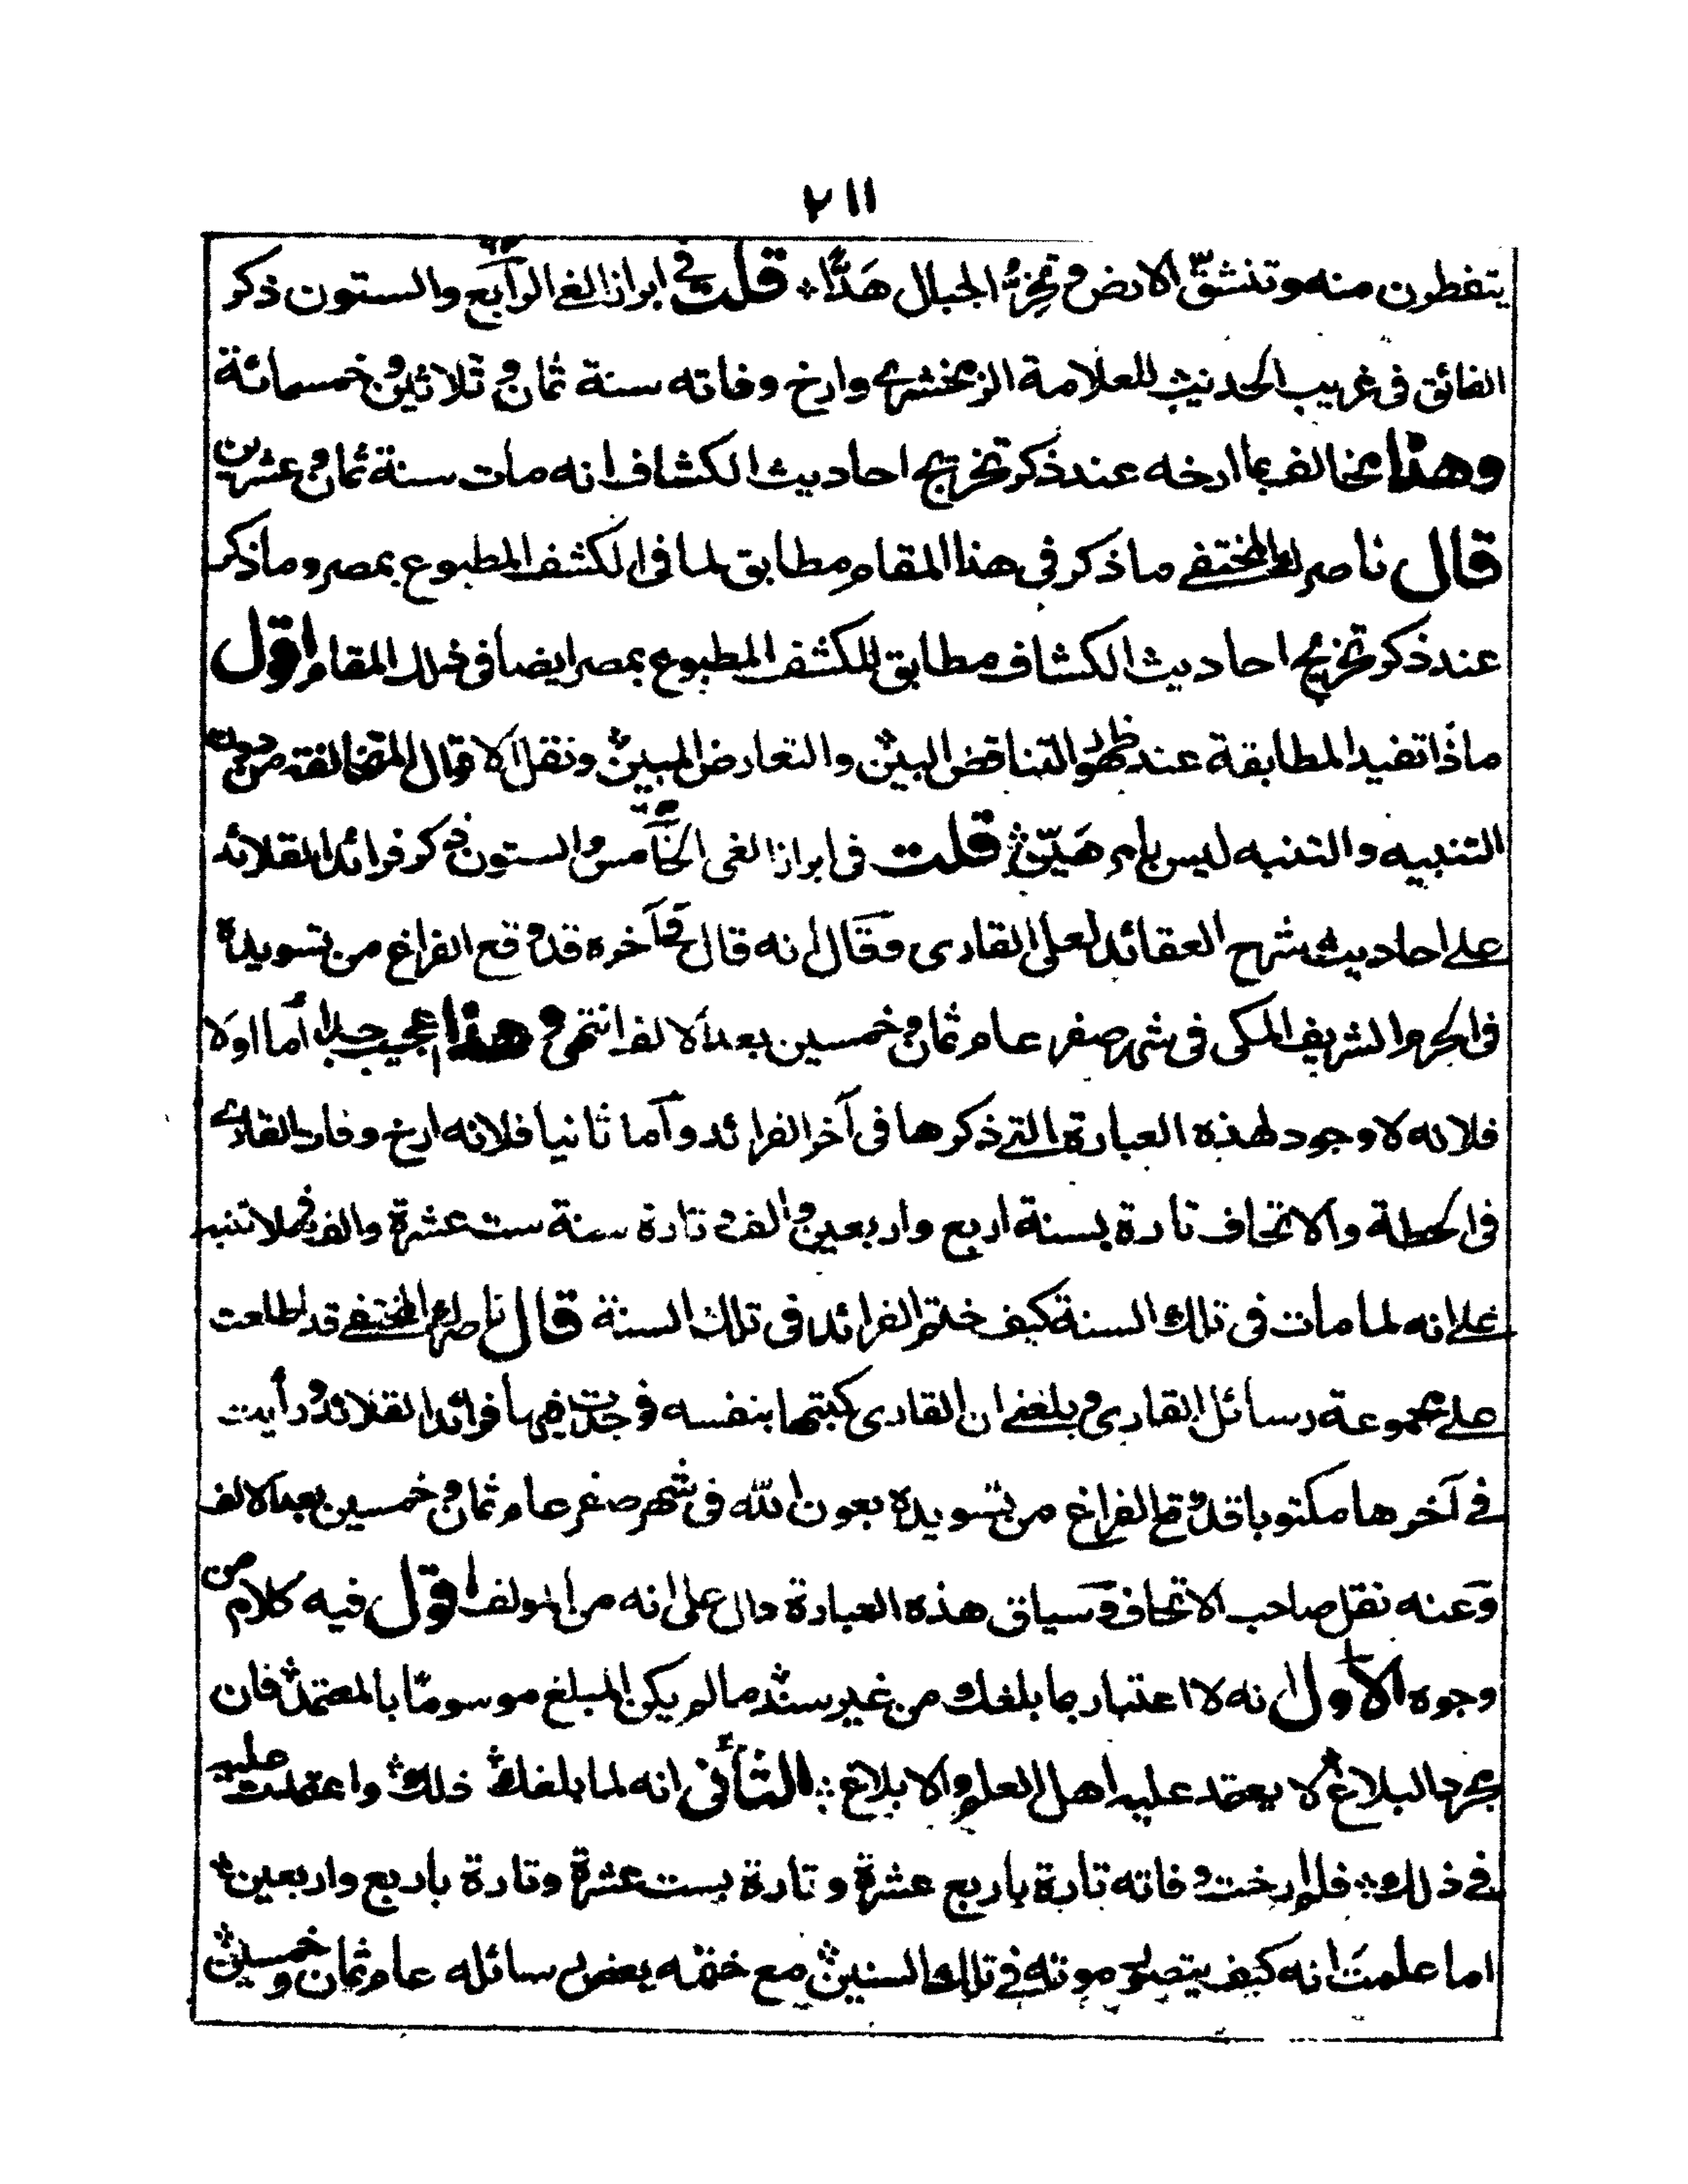 ٢١١
يتفطرن منه وتنشقّ الارض وتخرّ الجبال هَدًّا قلت في ابراز الغي الرابع والستون ذكر
الفائق فى غريب الحديث للعلامة الزمخشرى وارخ وفاته سنة ثمان وثلاثين وخمسمائة
وهذا مخالف بما ارخه عند ذكر تخريج احاديث الكشاف انه مات سنة ثمان وعشرين
قال ناصرك المختفى ما ذكر فى هذا المقام مطابق لما فى الكشف المطبوع بمصر وما ذكر
عند ذكر تخريج احاديث الكشاف مطابق للكشف المطبوع بمصر ايضا فى ذلك المقام اقول
ماذا تفيد المطابقة عند ظهور التناقض البين والتعارض المبين ونقل الاقوال المتخالفة من دون
التنبيه والتنبه ليس بامر هَيّن قلت فى ابراز الغى الخامس والستون ذكر فرائد القلائد
على احاديث شرح العقائد لعلى القارى وقال انه قال فى آخره قد وقع الفراغ من تسويده
فى الحرم الشريف المكى فى شهر صفر عام ثمان وخمسين بعد الالف انتهى وهذا عجيب جدا أما اولا
فلانه لا وجود لهذه العبارة التى ذكرها فى آخر الفرائد وأما ثانيا فلانه ارخ وفات القارى
فى الحطة والاتحاف تارة بسنة اربع واربعين والف وتارة سنة ست عشرة والف فهلا تنبه
على انه لما مات فى تلك السنة كيف ختم الفرائد فى تلك السنة قال ناصرك المختفى قد اطلعت
على مجموعة رسائل القارى وبلغنى ان القارى كتبها بنفسه فوجدت فيها فرائد القلائد ورأيت
فى آخرها مكتوبا قد وقع الفراغ من تسويده بعون الله فى شهر صفر عام ثمان وخمسين بعد الالف
وعنه نقل صاحب الاتحاف وسياق هذه العبارة دال على انه من المولف اقول فيه كلام من
وجوه الاول انه لا اعتبار بما بلغك من غير سند ما لم يكن المبلغ موسوما بالمعتمد فان
مجرد البلاغ لا يعتمد عليه اهل العلم والابلاغ الثانى انه لما بلغك ذلك واعتمدت عليه
فى ذلك فلم ارخت وفاته تارة باربع عشرة وتارة بست عشرة وتارة باربع واربعين
اما علمت انه كيف يتصور موته فى تلك السنين مع ختمه بعض رسائله عام ثمان وخمسين